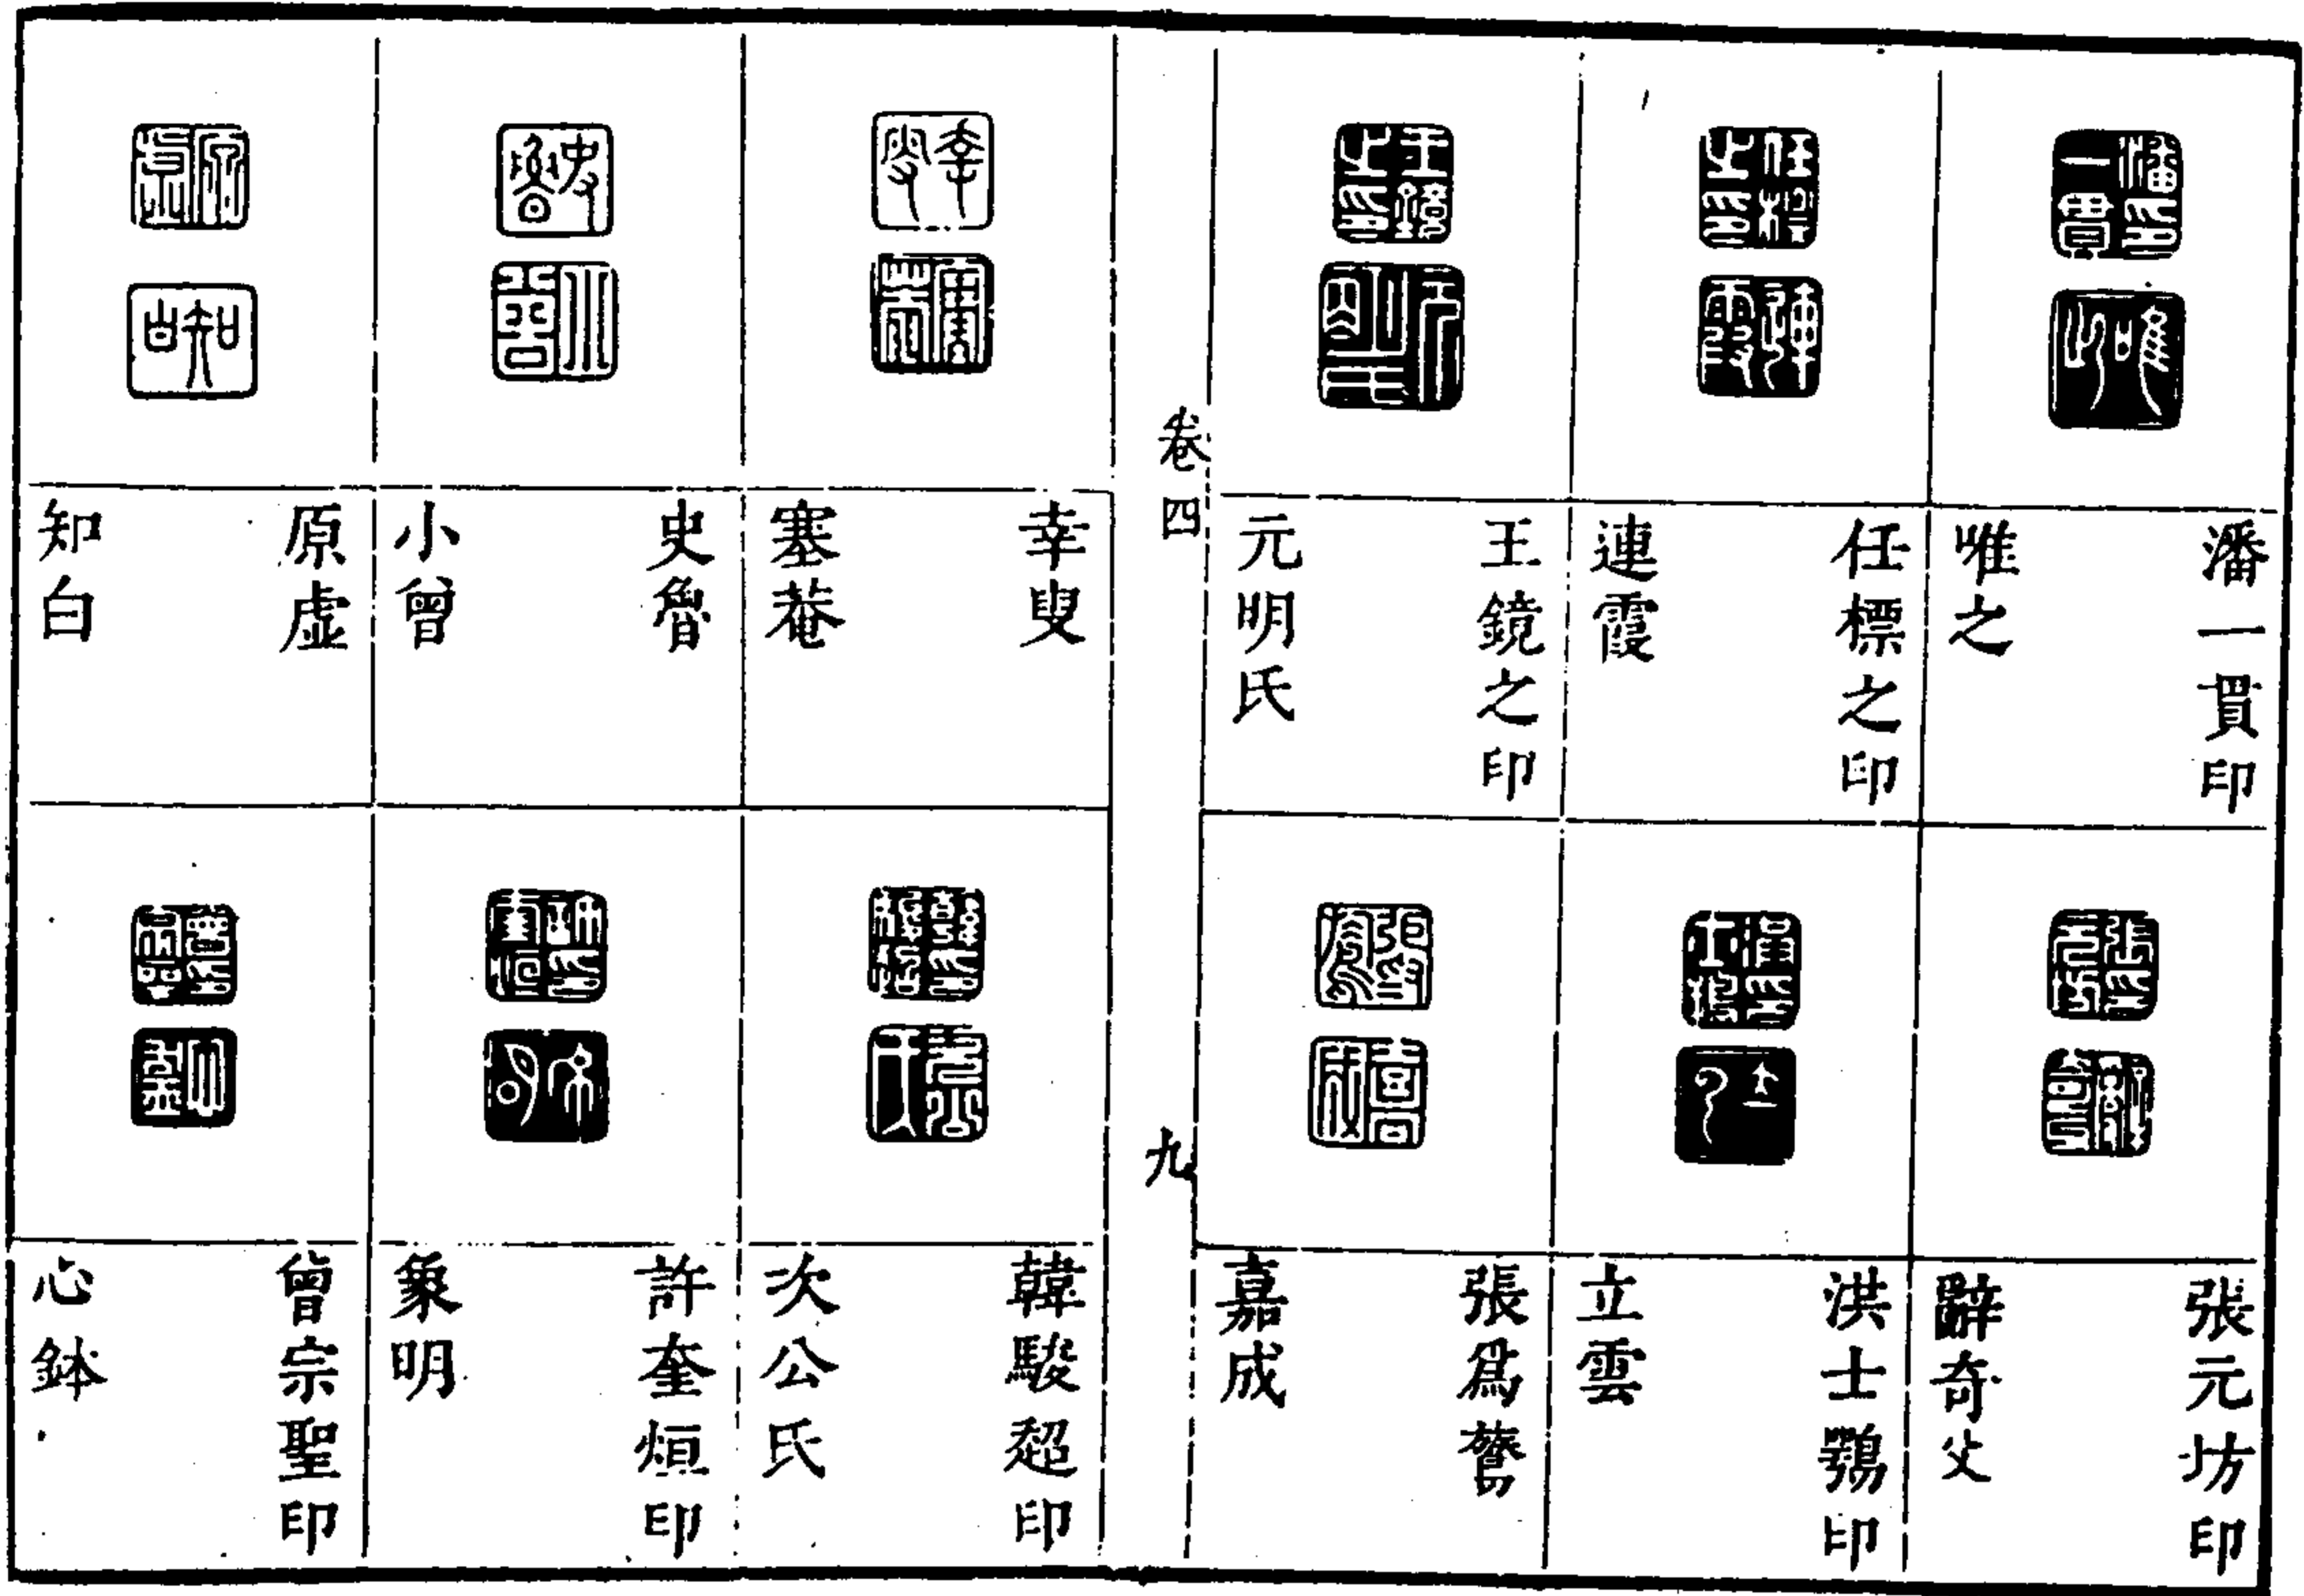 潘一貫印
唯之
任標之印
連霞
王鏡之印
元明氏
張元坊印
辭奇父
洪士鶚印
立雲
張爲鴌
嘉成
卷四
九
幸叟
塞菴
史魯
小曾
原虛
知白
韓駿超印
次公氏
許奎烜印
象明
曾宗聖印
心鉢